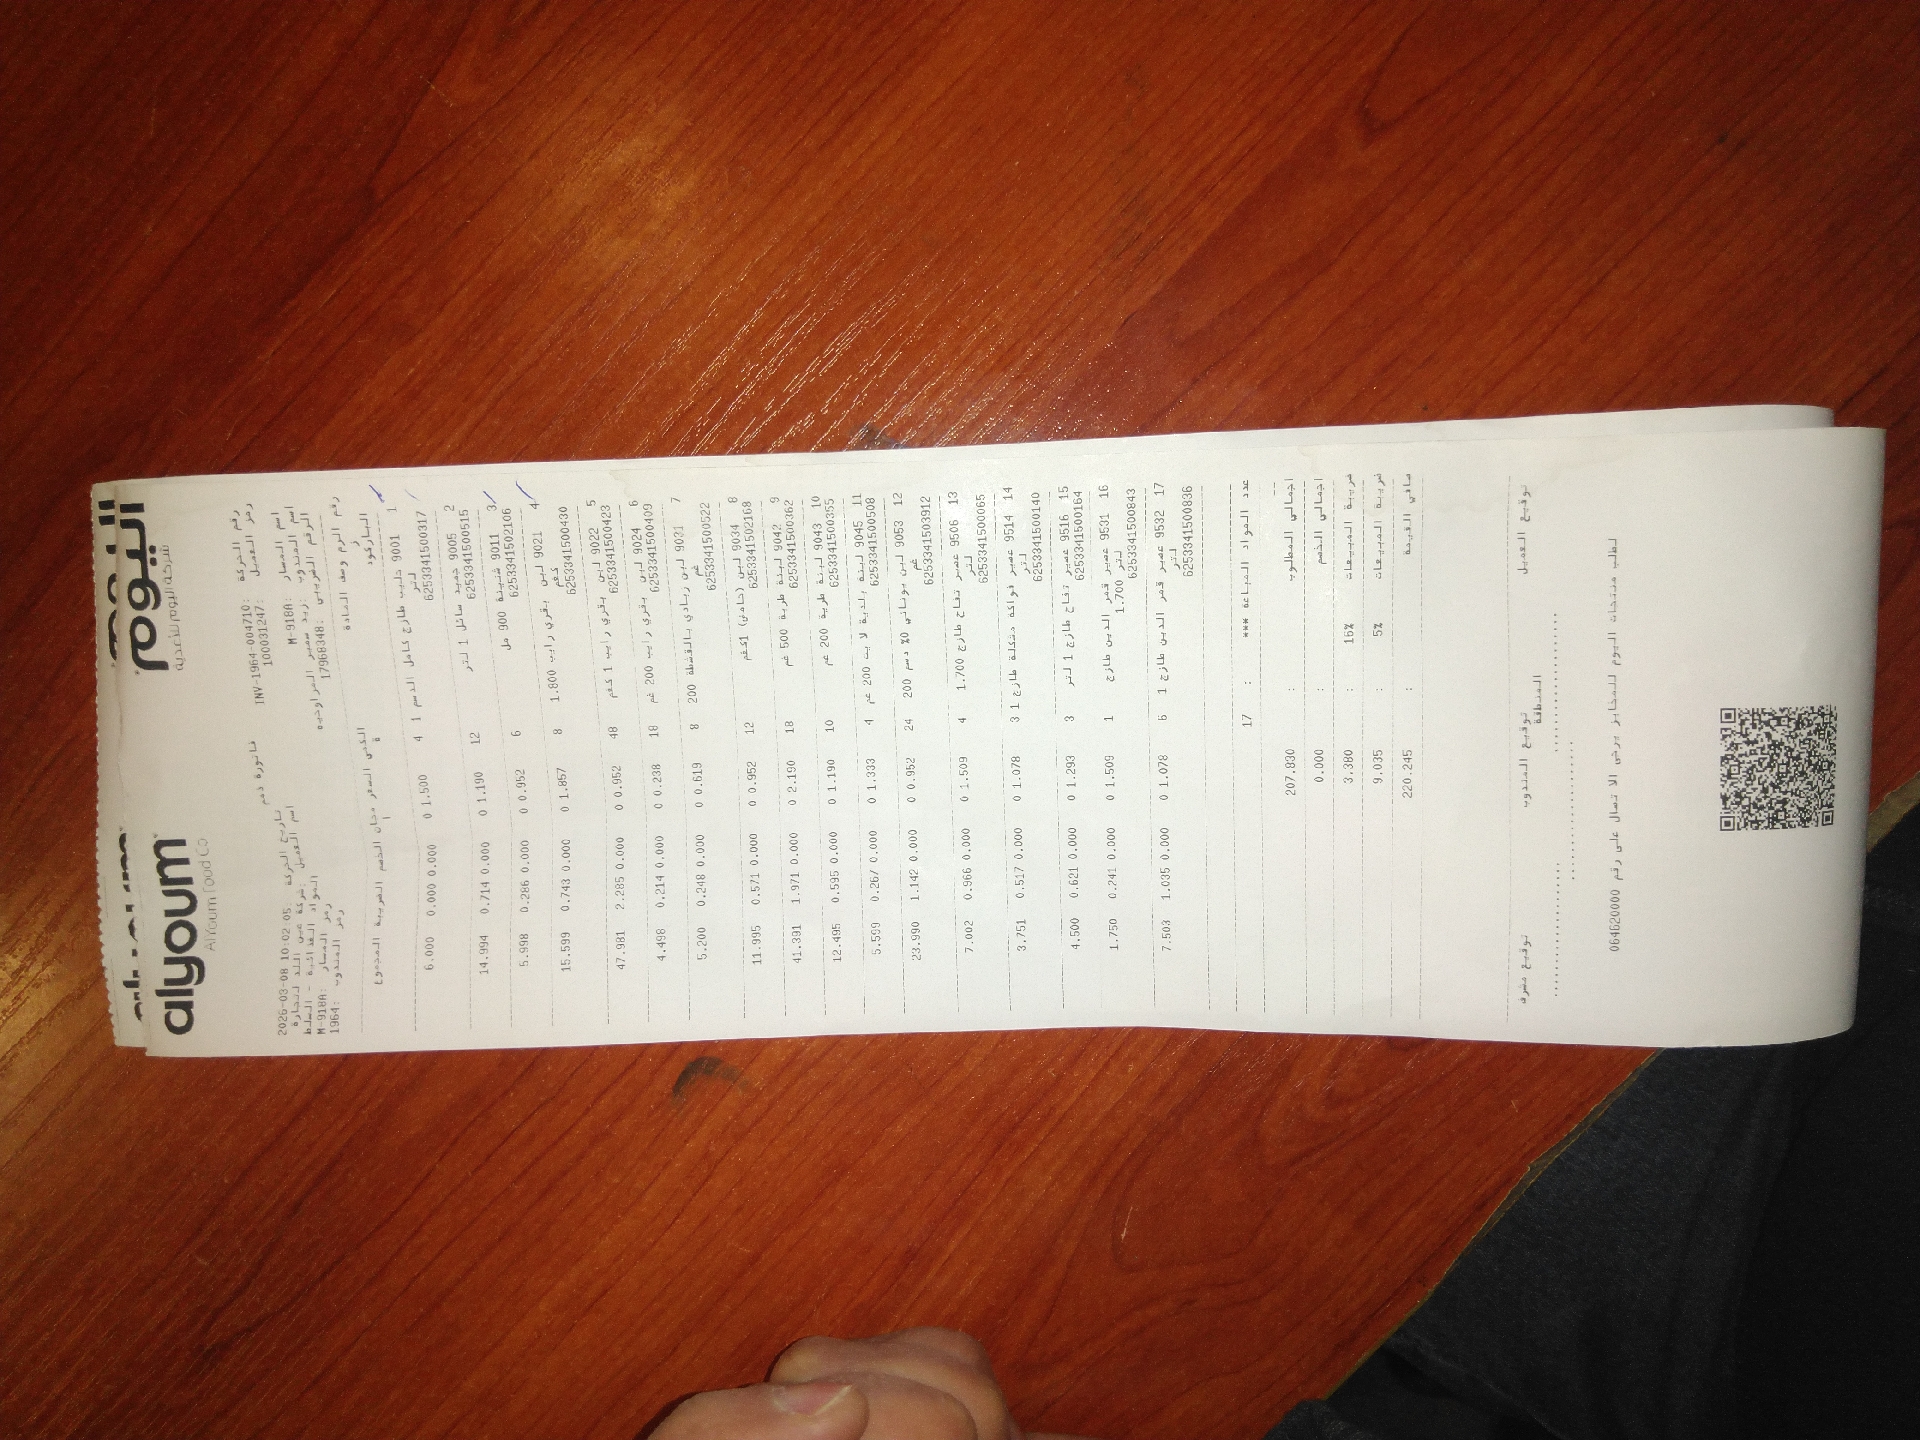 اليوم
alyoum
شركة اليوم للأغذية
AlYoum Food Co
فاتورة ذمم
رقم الحركة: INV-1964-004710
تاريخ الحركة 2026-03-08 10:02:05
رمز العميل: 100031247
اسم العميل: شركة عين اللد لتجارة
المواد الغذائية - السلط
اسم المسار: M-918A
رمز المسار: M-918A
اسم المندوب: زيد سمير
رمز المندوب: 1964
الرقم الضريبي: 17968348
رقم الرم وصف المادة
الباركود
الكمي السعر مجان الخصم الضريبة المجموع
1 9001 حليب طازج كامل الدسم 1 4 1.500 0 0.000 0.000 6.000
لتر
6253341500317
2 9005 جميد سائل 1 لتر 12 1.190 0 0.000 0.714 14.994
6253341500515
3 9011 شنينة 900 مل 6 0.952 0 0.000 0.286 5.998
6253341502106
4 9021 لبن بقري رايب 1.800 8 1.857 0 0.000 0.743 15.599
كغم
6253341500430
5 9022 لبن بقري رايب 1 كغم 48 0.952 0 0.000 2.285 47.981
6253341500423
6 9024 لبن بقري رايب 200 غم 18 0.238 0 0.000 0.214 4.498
6253341500409
7 9031 لبن زبادي بالقشطة 200 8 0.619 0 0.000 0.248 5.200
غم
6253341500522
8 9034 لبن (حامض) 1كغم 12 0.952 0 0.000 0.571 11.995
6253341502168
9 9042 لبنة طرية 500 غم 18 2.190 0 0.000 1.971 41.391
6253341500362
10 9043 لبنة طرية 200 غم 10 1.190 0 0.000 0.595 12.495
6253341500355
11 9045 لبنة بلدية لايت 200 غم 4 1.333 0 0.000 0.267 5.599
6253341500508
12 9053 لبن يوناني 0% دسم 200 24 0.952 0 0.000 1.142 23.990
غم
6253341503912
13 9506 عصير تفاح طازج 1.700 4 1.509 0 0.000 0.966 7.002
لتر
6253341500065
14 9514 عصير فواكة مشكلة طازج 1 3 1.078 0 0.000 0.517 3.751
لتر
6253341500140
15 9516 عصير تفاح طازج 1 لتر 3 1.293 0 0.000 0.621 4.500
6253341500164
16 9531 عصير قمر الدين طازج 1 1.509 0 0.000 0.241 1.750
1.700 لتر
6253341500843
17 9532 عصير قمر الدين طازج 1 6 1.078 0 0.000 1.035 7.503
لتر
6253341500836
عدد المواد المباعة *** : 17
اجمالي المطلوب : 207.830
اجمالي الخصم : 0.000
ضريبة المبيعات 16% : 3.380
ضريبة المبيعات 5% : 9.035
صافي القيمة : 220.245
توقيع العميل توقيع المندوب توقيع مشرف
المنطقة
لطلب منتجات اليوم للمخابز يرجى الا تسال على رقم 064620000